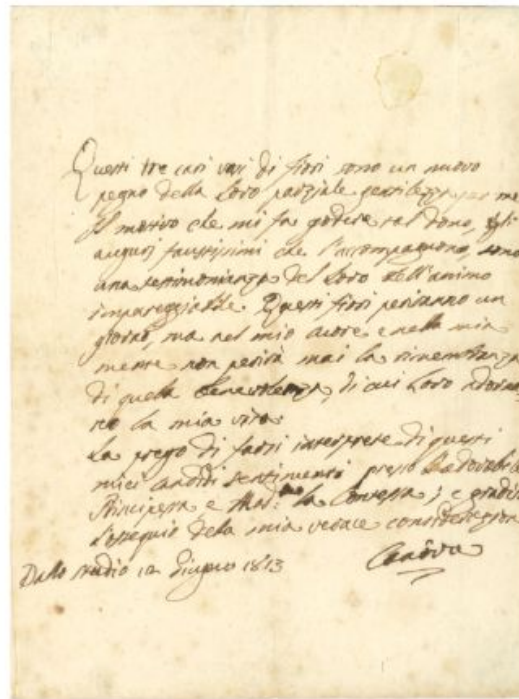 Questi tre cari vasi di fiori sono un nuovo
pegno della Loro parziale gentilezza per me
Il motivo che mi fa godere tal dono, e gli
augurj faustissimi che l'accompagnano, sono
una testimonianza del Loro bell'animo
impareggiabile. Questi fiori periranno un
giorno, ma nel mio cuore e nella mia
mente non perirà mai la rimembranza
di quella benevolenza, di cui Loro adorna
no la mia vita.
La prego di farsi interprete di questi
miei candidi sentimenti presso l'adorabile
Principessa e Mad.ma la Contessa; e gradire
l'ossequio della mia verace considerazione
Canova
Dallo studio 12 Giugno 1813